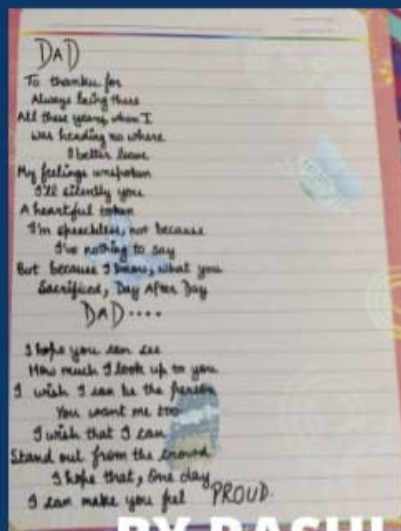 DAD
To thanku for
Always being there
All these years, when I
was heading no where
I better leave
My feelings unspoken
I'll silently you
A heartful token
I'm speechless, not because
I've nothing to say
But because I know, what you
Sacrificed, Day After Day
DAD....
I hope you can see
How much I look up to you
I wish I can be the person
You want me too
I wish that I can
Stand out from the crowd
I hope that, One day
I can make you feel PROUD.